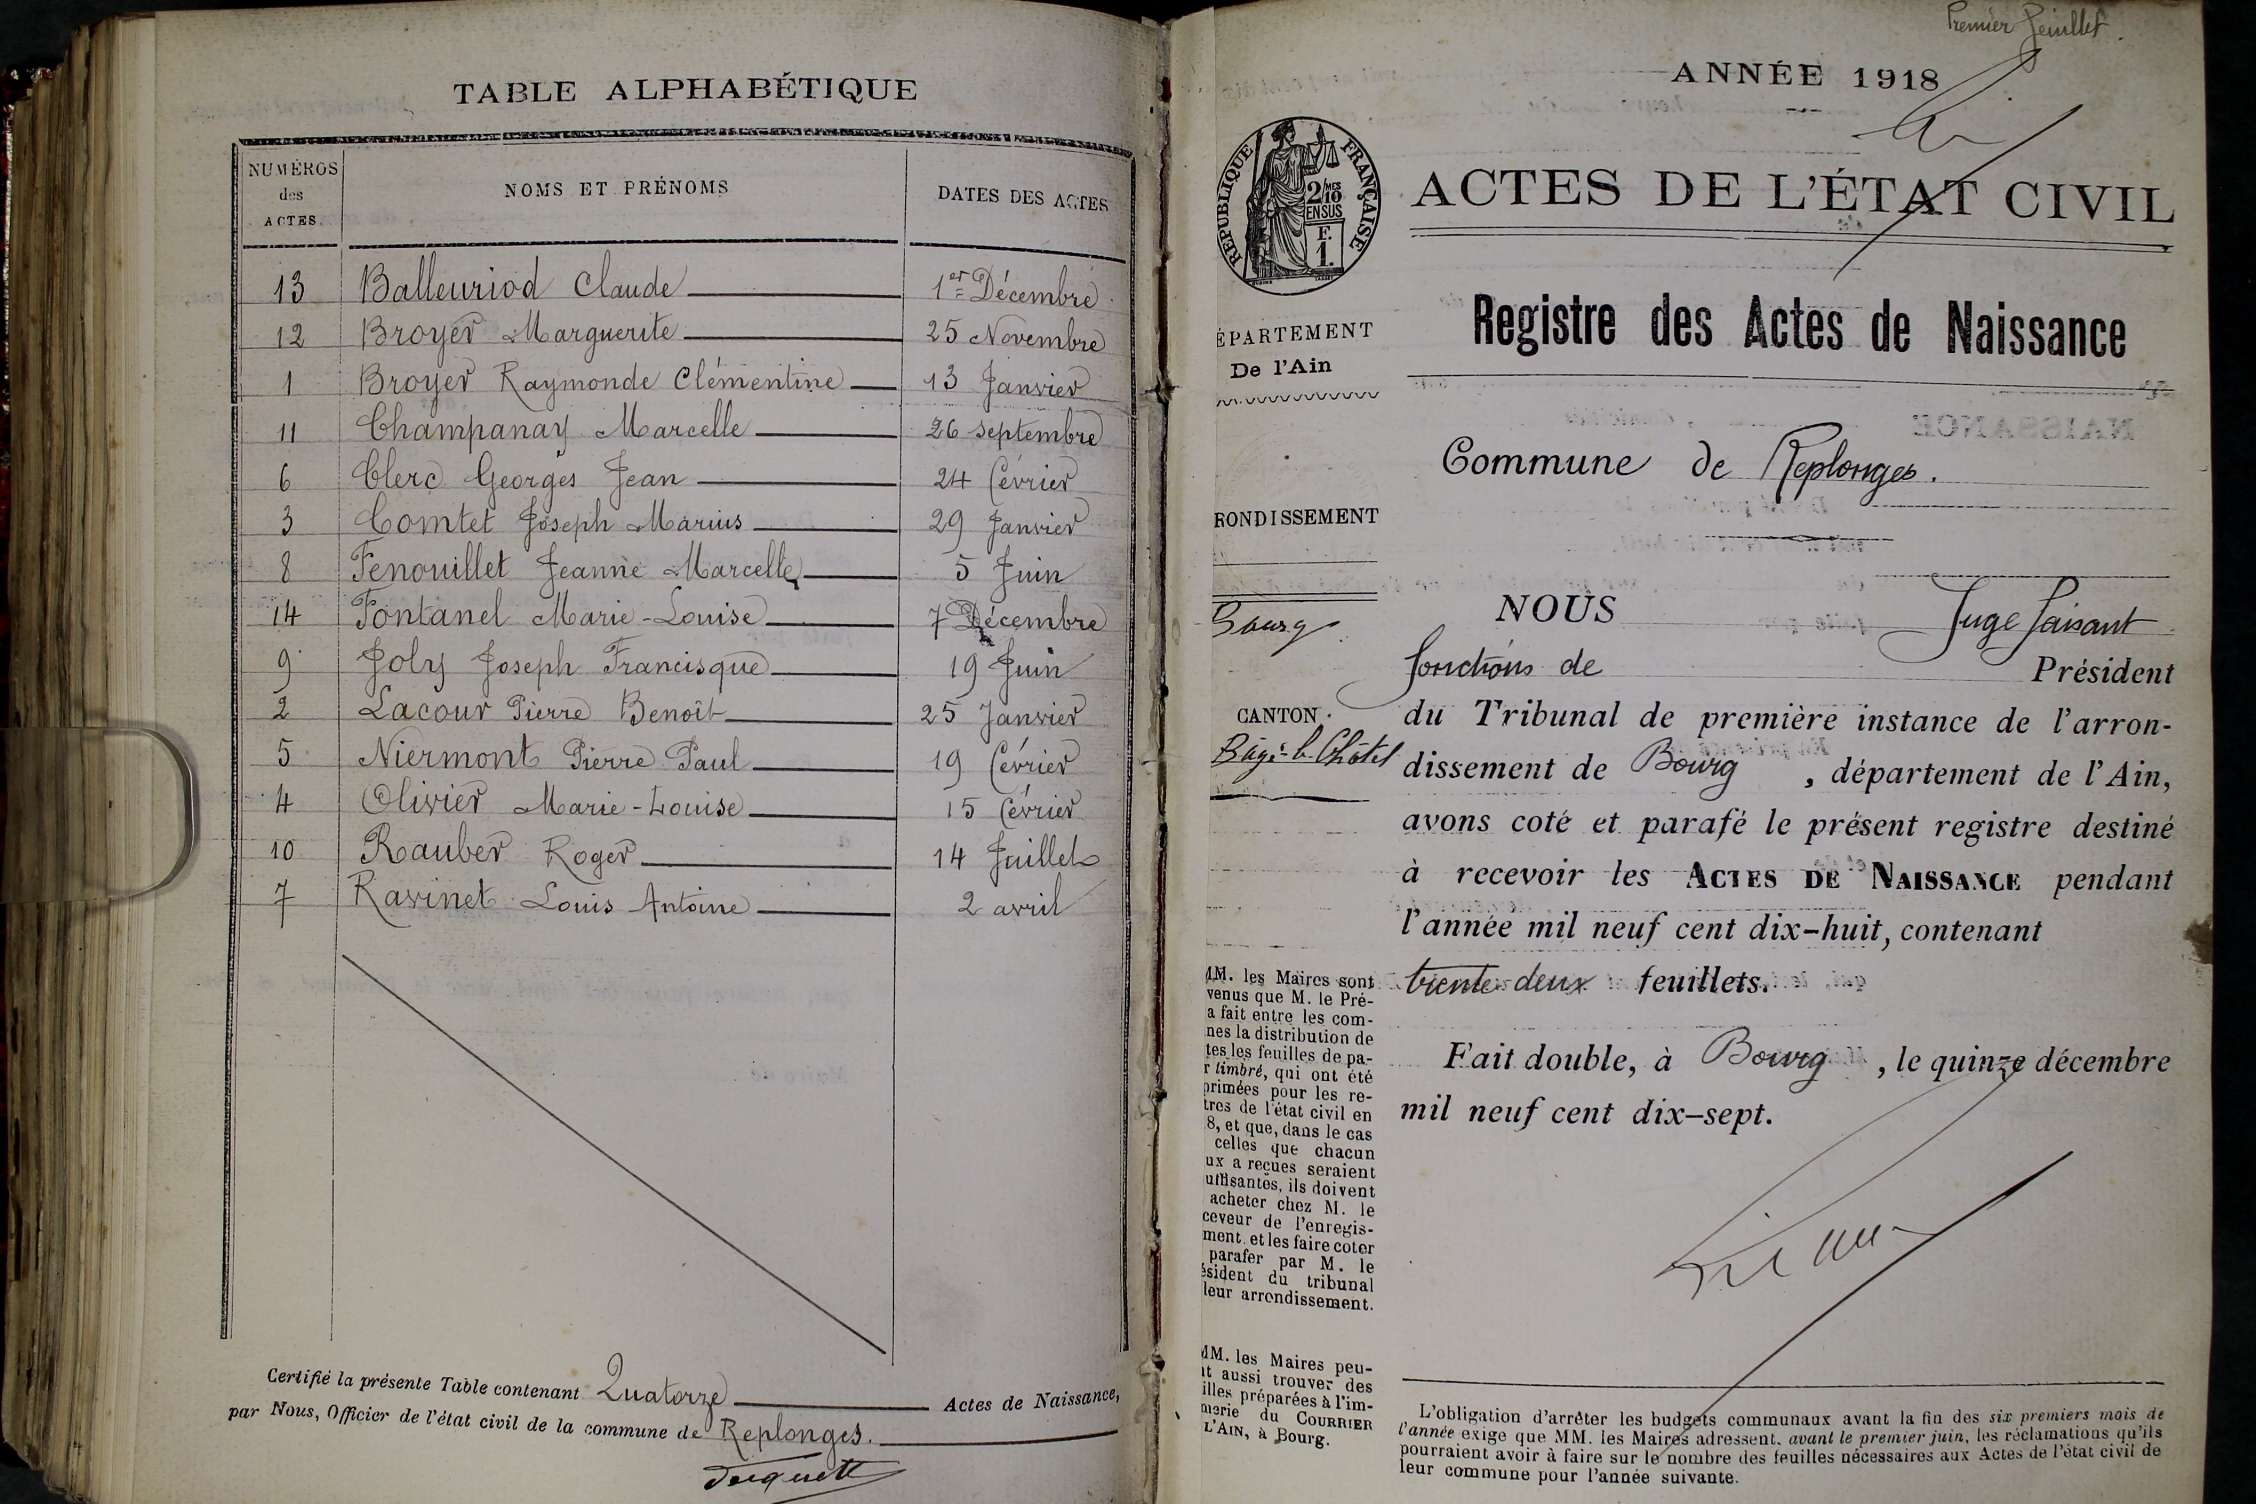 TABLE ALPHABÉTIQUE
NUMÉROS
des
ACTES.
NOMS ET PRÉNOMS
DATES DES ACTES
13 Balleuriod Claude 1er Décembre
12 Broyer Marguerite 25 Novembre
1 Broyer Raymonde Clémentine 13 Janvier
11 Champanay Marcelle 26 septembre
6 Clerc Georges Jean 24 Février
3 Comtet Joseph Marius 29 Janvier
8 Fenouillet Jeanne Marcelle 5 Juin
14 Fontanel Marie-Louise 7 Décembre
9 Joly Joseph Francisque 19 Juin
2 Lacour Pierre Benoît 25 Janvier
5 Niermont Pierre Paul 19 Février
4 Olivier Marie-Louise 15 Février
10 Rauber Roger 14 Juillet
7 Ravinet Louis Antoine 2 avril
Certifié la présente Table contenant Quatorze Actes de Naissance,
par Nous, Officier de l'état civil de la commune de Replonges.
Premier feuillet.
ANNÉE 1918
RÉPUBLIQUE FRANÇAISE
2/10MES
EN SUS
F.
1.
ACTES DE L'ÉTAT CIVIL
Registre des Actes de Naissance
ÉPARTEMENT
De l'Ain
Commune de Replonges.
RONDISSEMENT
Bourg
NOUS Juge faisant
fonctions de Président
CANTON
Bâgé-le-Châtel
du Tribunal de première instance de l'arron-
dissement de Bourg, département de l'Ain,
avons coté et parafé le présent registre destiné
à recevoir les ACTES DE NAISSANCE pendant
l'année mil neuf cent dix-huit, contenant
trente deux feuillets.
Fait double, à Bourg, le quinze décembre
mil neuf cent dix-sept.
MM. les Maires sont
venus que M. le Pré-
a fait entre les com-
nes la distribution de
tes les feuilles de pa-
r timbré, qui ont été
primées pour les re-
tres de l'état civil en
8, et que, dans le cas
celles que chacun
ux a reçues seraient
uffisantes, ils doivent
acheter chez M. le
ceveur de l'enregis-
ment et les faire coter
parafer par M. le
ésident du tribunal
leur arrondissement.
MM. les Maires peu-
nt aussi trouver des
illes préparées à l'im-
merie du COURRIER
L'AIN, à Bourg.
L'obligation d'arrêter les budgets communaux avant la fin des six premiers mois de
l'année exige que MM. les Maires adressent, avant le premier juin, les réclamations qu'ils
pourraient avoir à faire sur le nombre des feuilles nécessaires aux Actes de l'état civil de
leur commune pour l'année suivante.